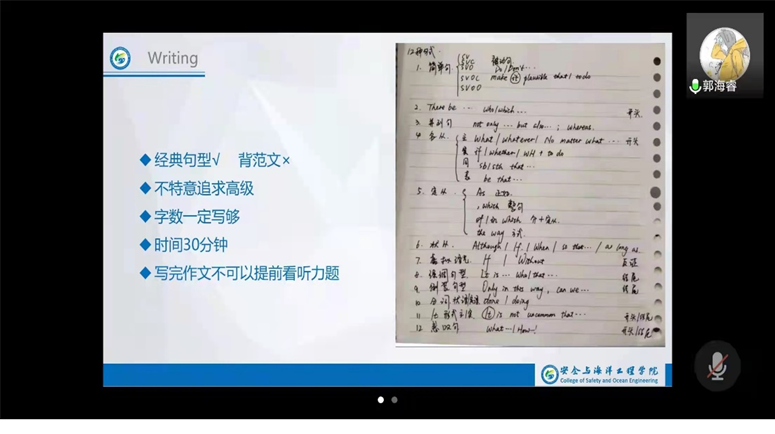 Writing
郭海睿
经典句型√ 背范文×
不特意追求高级
字数一定写够
时间30分钟
写完作文不可以提前看听力题
12种句式
1. 简单句
SV
SVC
SVO
SVOC make it plausible that / to do
SVOO
2. There be … who/which … 开头
3. 并列句 not only … but also … ; whereas.
4. 名从 主 What / whatever / No matter what … 开头
宾 if / whether / WH + to do
同 sb/sth that …
表 be that …
5. 定从 As
, which 整句
of / in which
the way 方式.
6. 状从 Although / If / When / so that … / as long as
7. 虚拟语气 If / Without
8. 强调句型 It is … who/that … 结尾
9. 倒装句型 Only in this way, can we … 结尾
10. 分词 状语 done / doing
11. 形式主语 It is not uncommon that … 开头/结尾
12. 感叹句 What …! How …! 开头/结尾
安全与海洋工程学院
College of Safety and Ocean Engineering